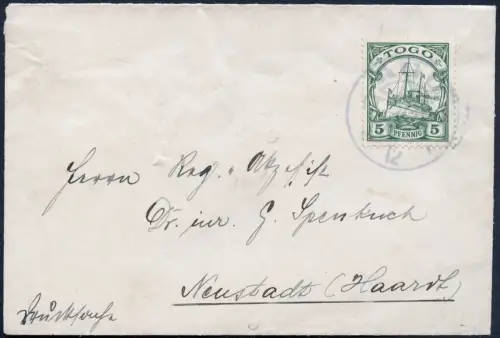 TOGO
5 PFENNIG 5
12
Herrn Reg.
Dr. iur. G. Spenkuch
Neustadt (Haardt)
Drucksache